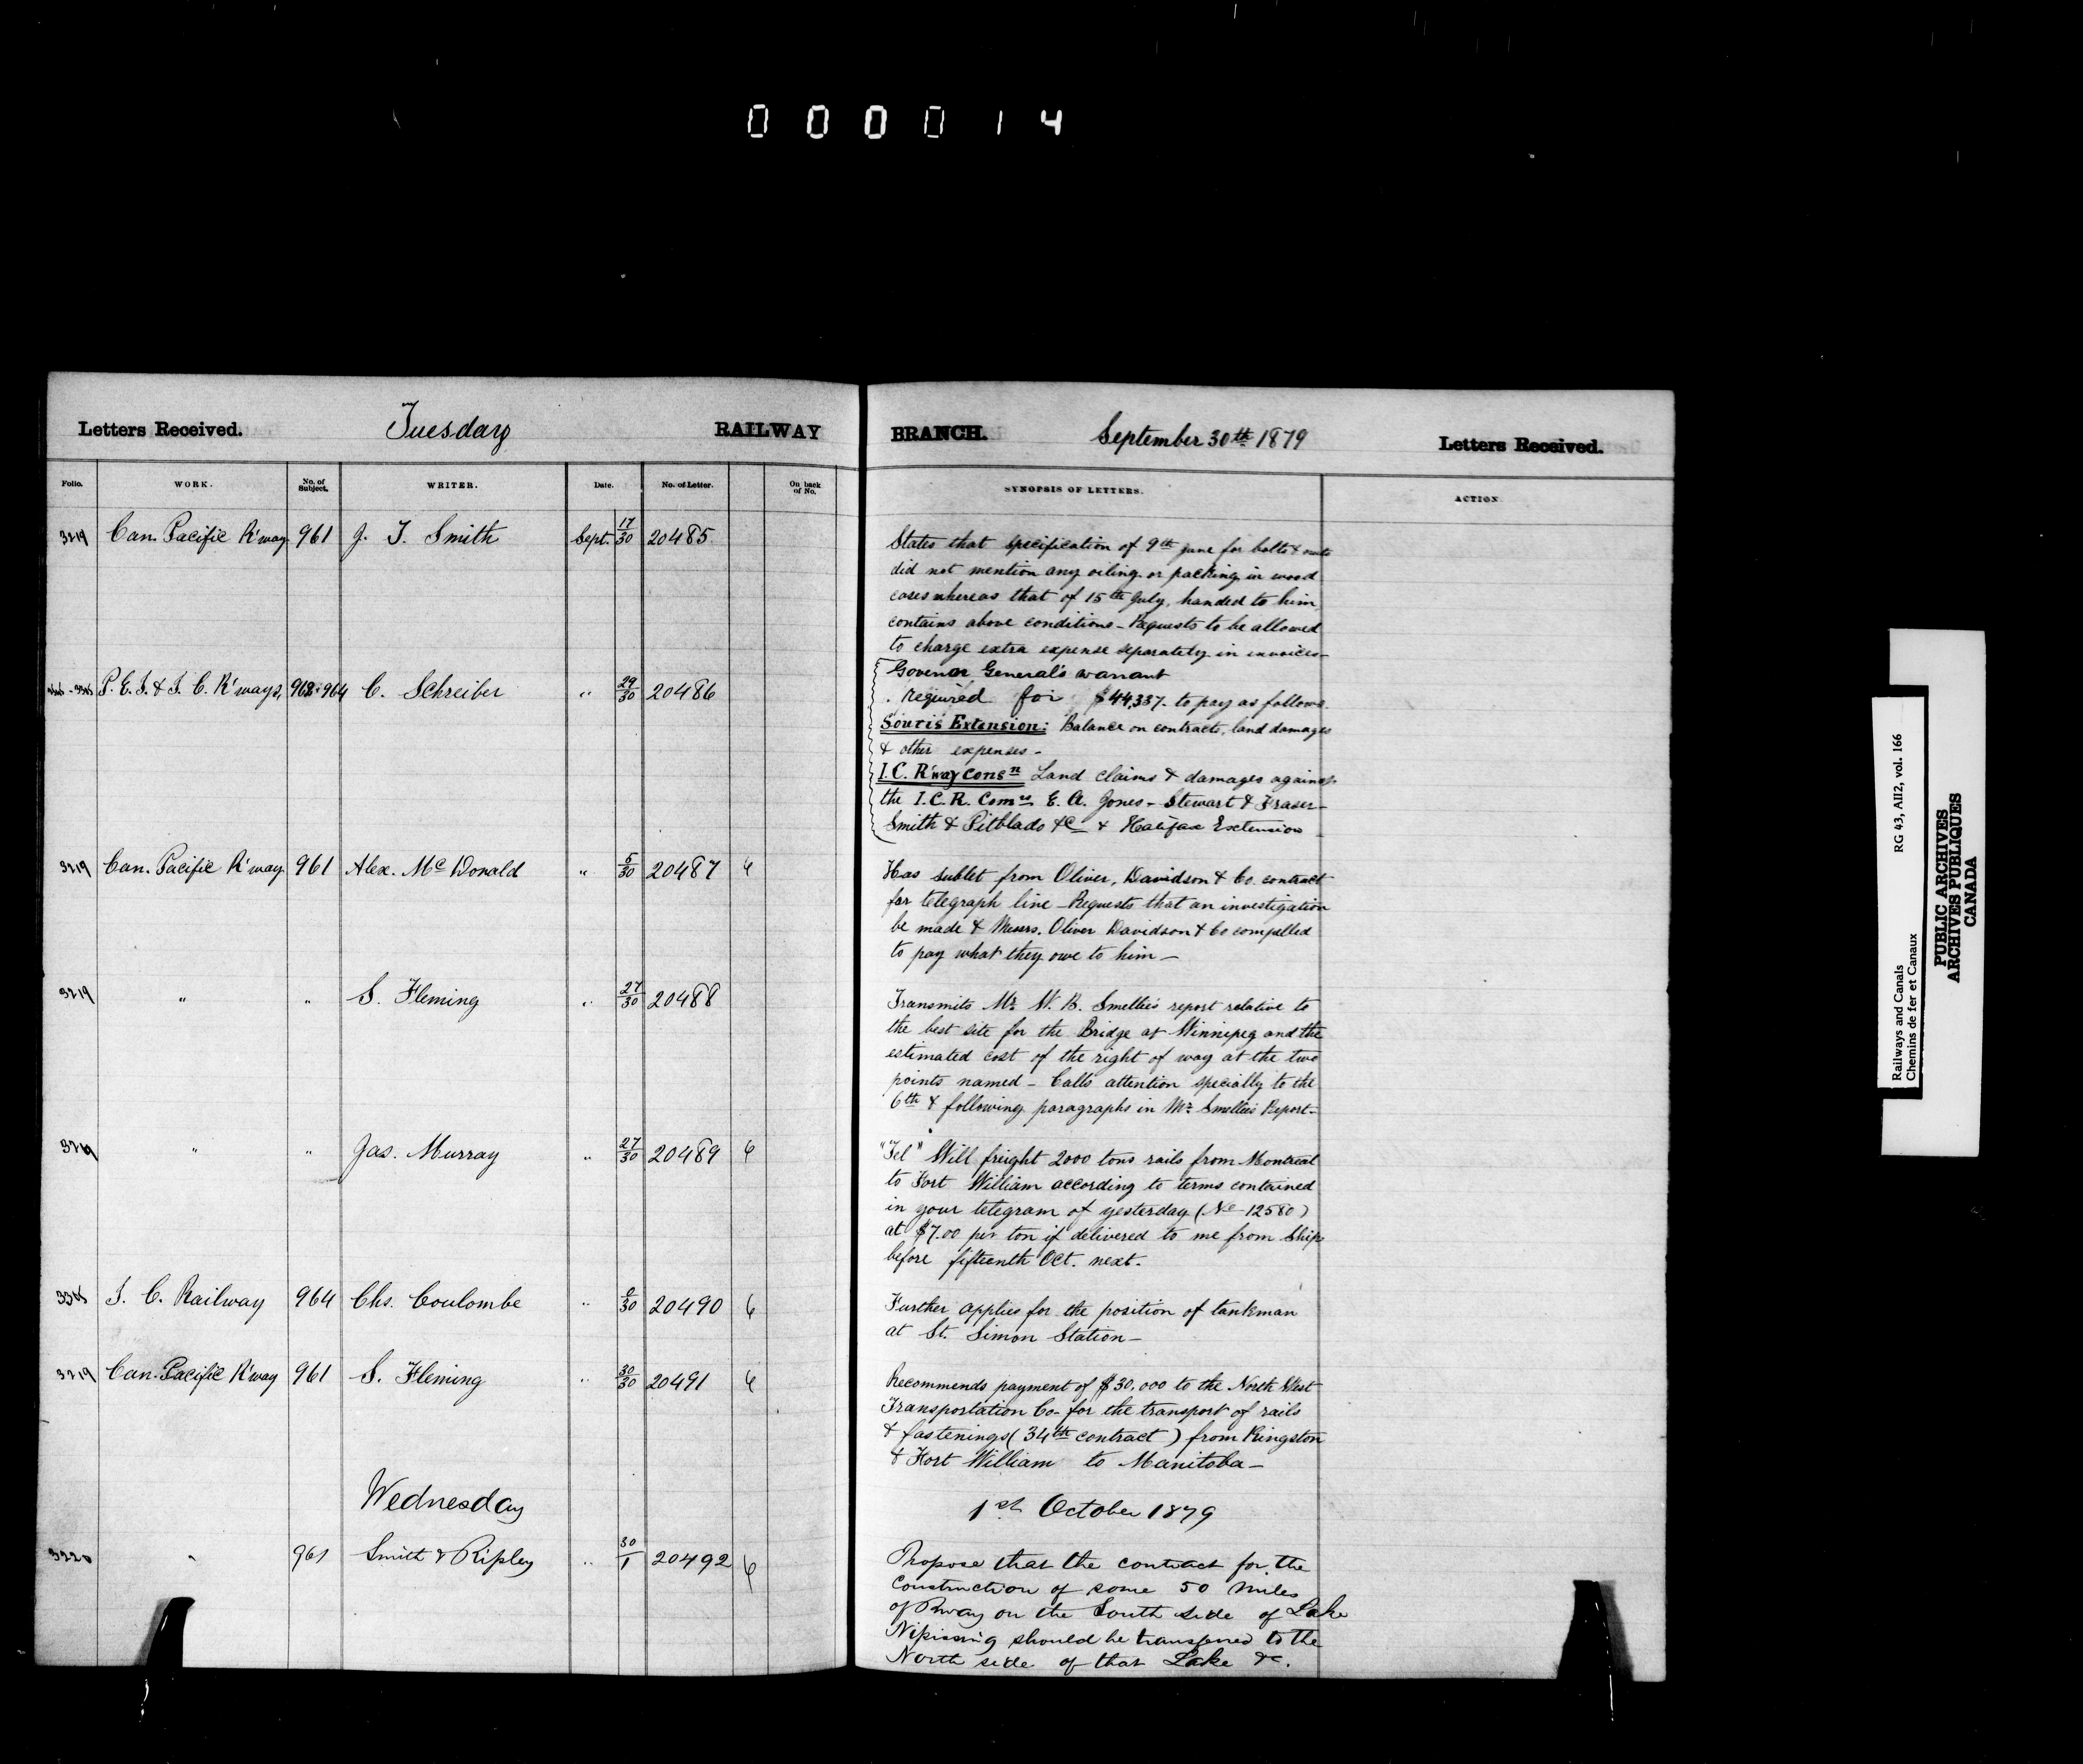 000014
Letters Received. Tuesday RAILWAY BRANCH. September 30th 1879 Letters Received.
Folio. WORK. No. of Subject. WRITER. Date. No. of Letter. On back of No. SYNOPSIS OF LETTERS. ACTION
3219 Can. Pacific R'way 961 J. T. Smith Sept. 17/30 20485
States that specification of 9th June for bolts & nuts
did not mention any oiling or packing in wood
cases whereas that of 15th July, handed to him,
contains above conditions - Requests to be allowed
to charge extra expense separately in invoices -
P. E. I. & I. C. R'ways, 963 & 964 C. Schreiber " 29/30 20486
Govenor General's warrant
required for $44,337. to pay as follows.
Souris Extension: Balance on contracts, land damages
& other expenses -
I.C. R'way Consn Land claims & damages against
the I.C.R. Comrs E. A. Jones - Stewart & Fraser -
Smith & Pitblado &c & Halifax Extension
3219 Can. Pacific R'way 961 Alex. McDonald " 5/30 20487 6
Has sublet from Oliver, Davidson & Co. contract
for telegraph line - Requests that an investigation
be made & Messrs. Oliver Davidson & Co compelled
to pay what they owe to him -
3219 " " S. Fleming " 27/30 20488
Transmits Mr. W. B. Smellie's report relative to
the best site for the Bridge at Winnipeg and the
estimated cost of the right of way at the two
points named - Calls attention specially to the
6th & following paragraphs in Mr. Smellie's Report -
3219 " " Jas. Murray " 27/30 20489 6
"Tel" Will freight 2000 tons rails from Montreal
to Fort William according to terms contained
in your telegram of yesterday (No 12580)
at $7.00 per ton if delivered to me from Ship
before fifteenth Oct. next.
I. C. Railway 964 Chs. Coulombe " 20490 6
Further applies for the position of tankman
at St. Simon Station -
3219 Can. Pacific R'way 961 S. Fleming " 30/30 20491 6
Recommends payment of $30,000 to the North West
Transportation Co. for the transport of rails
& fastenings (34th contract) from Kingston
& Fort William to Manitoba -
Wednesday 1st October 1879
3220 " 961 Smith & Ripley " 30/1 20492 6
Propose that the contract for the
Construction of some 50 miles
of Rway on the South side of Lake
Nipissing should be transferred to the
North side of that Lake &c.
Railways and Canals RG 43, AII2, vol. 166
Chemins de fer et Canaux
PUBLIC ARCHIVES
ARCHIVES PUBLIQUES
CANADA